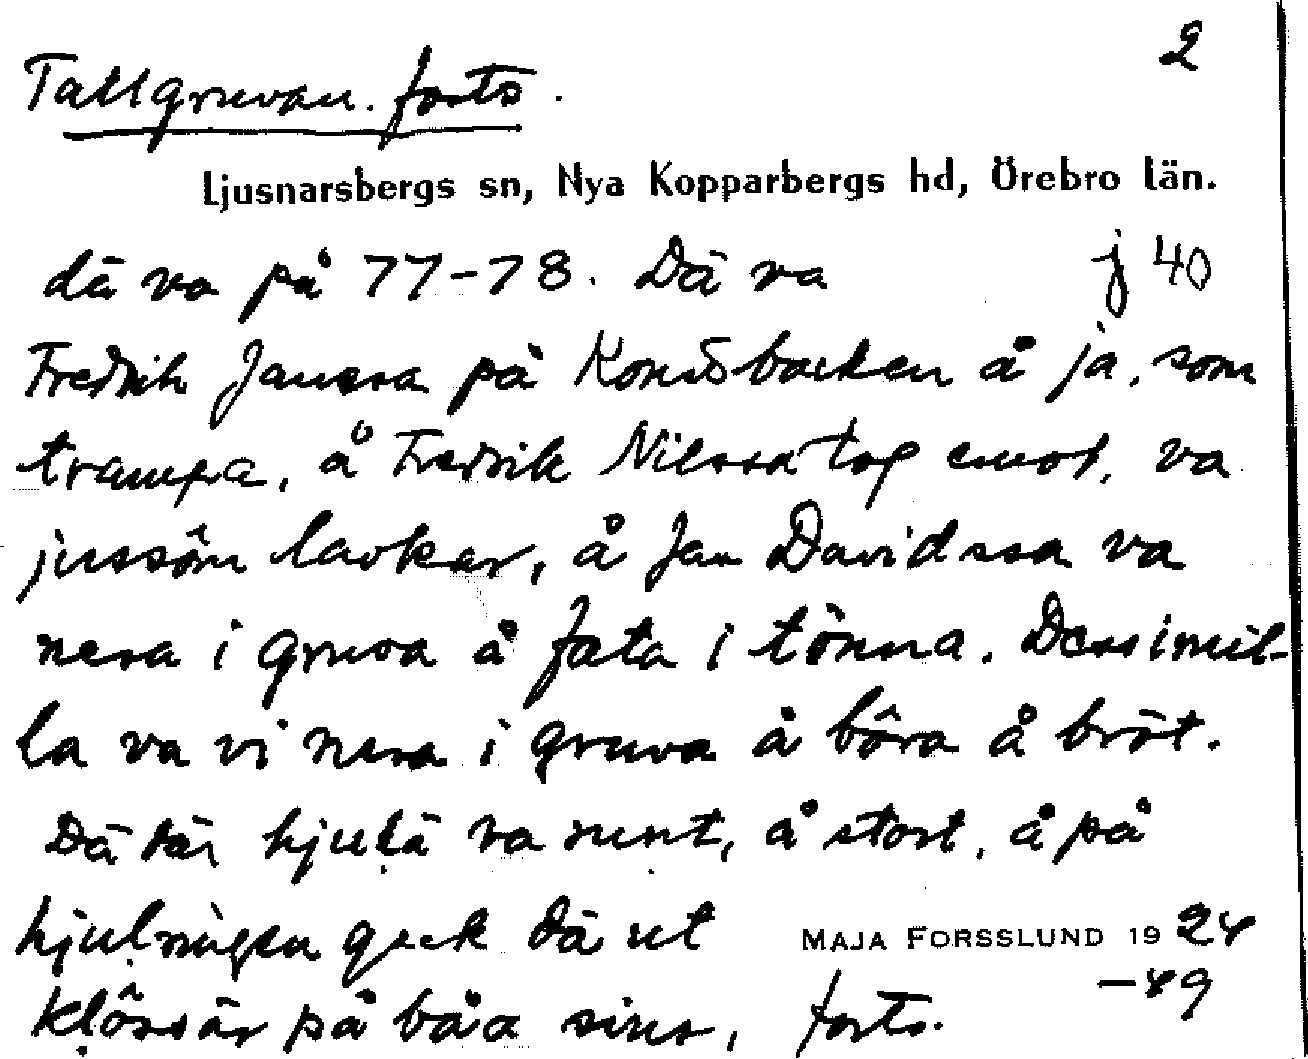 2
Tallgruvan. forts.
Ljusnarsbergs sn, Nya Kopparbergs hd, Örebro län.
dä va på 77-78. Dä va j 40
Fredrik Janssa på backen å ja, som
trampa, å Fredrik Nilssa tog emot, va
jussôm lavkar, å Jan Davidssa va
nera i gruva å fata i tönna. Dessimil-
la va vi nera i gruva å bôra å bröt.
Dä där hjulä va runt, å stort, å på
hjulringen geck dä ut MAJA FORSSLUND 1924
klôssär på båa sier, forts. -49